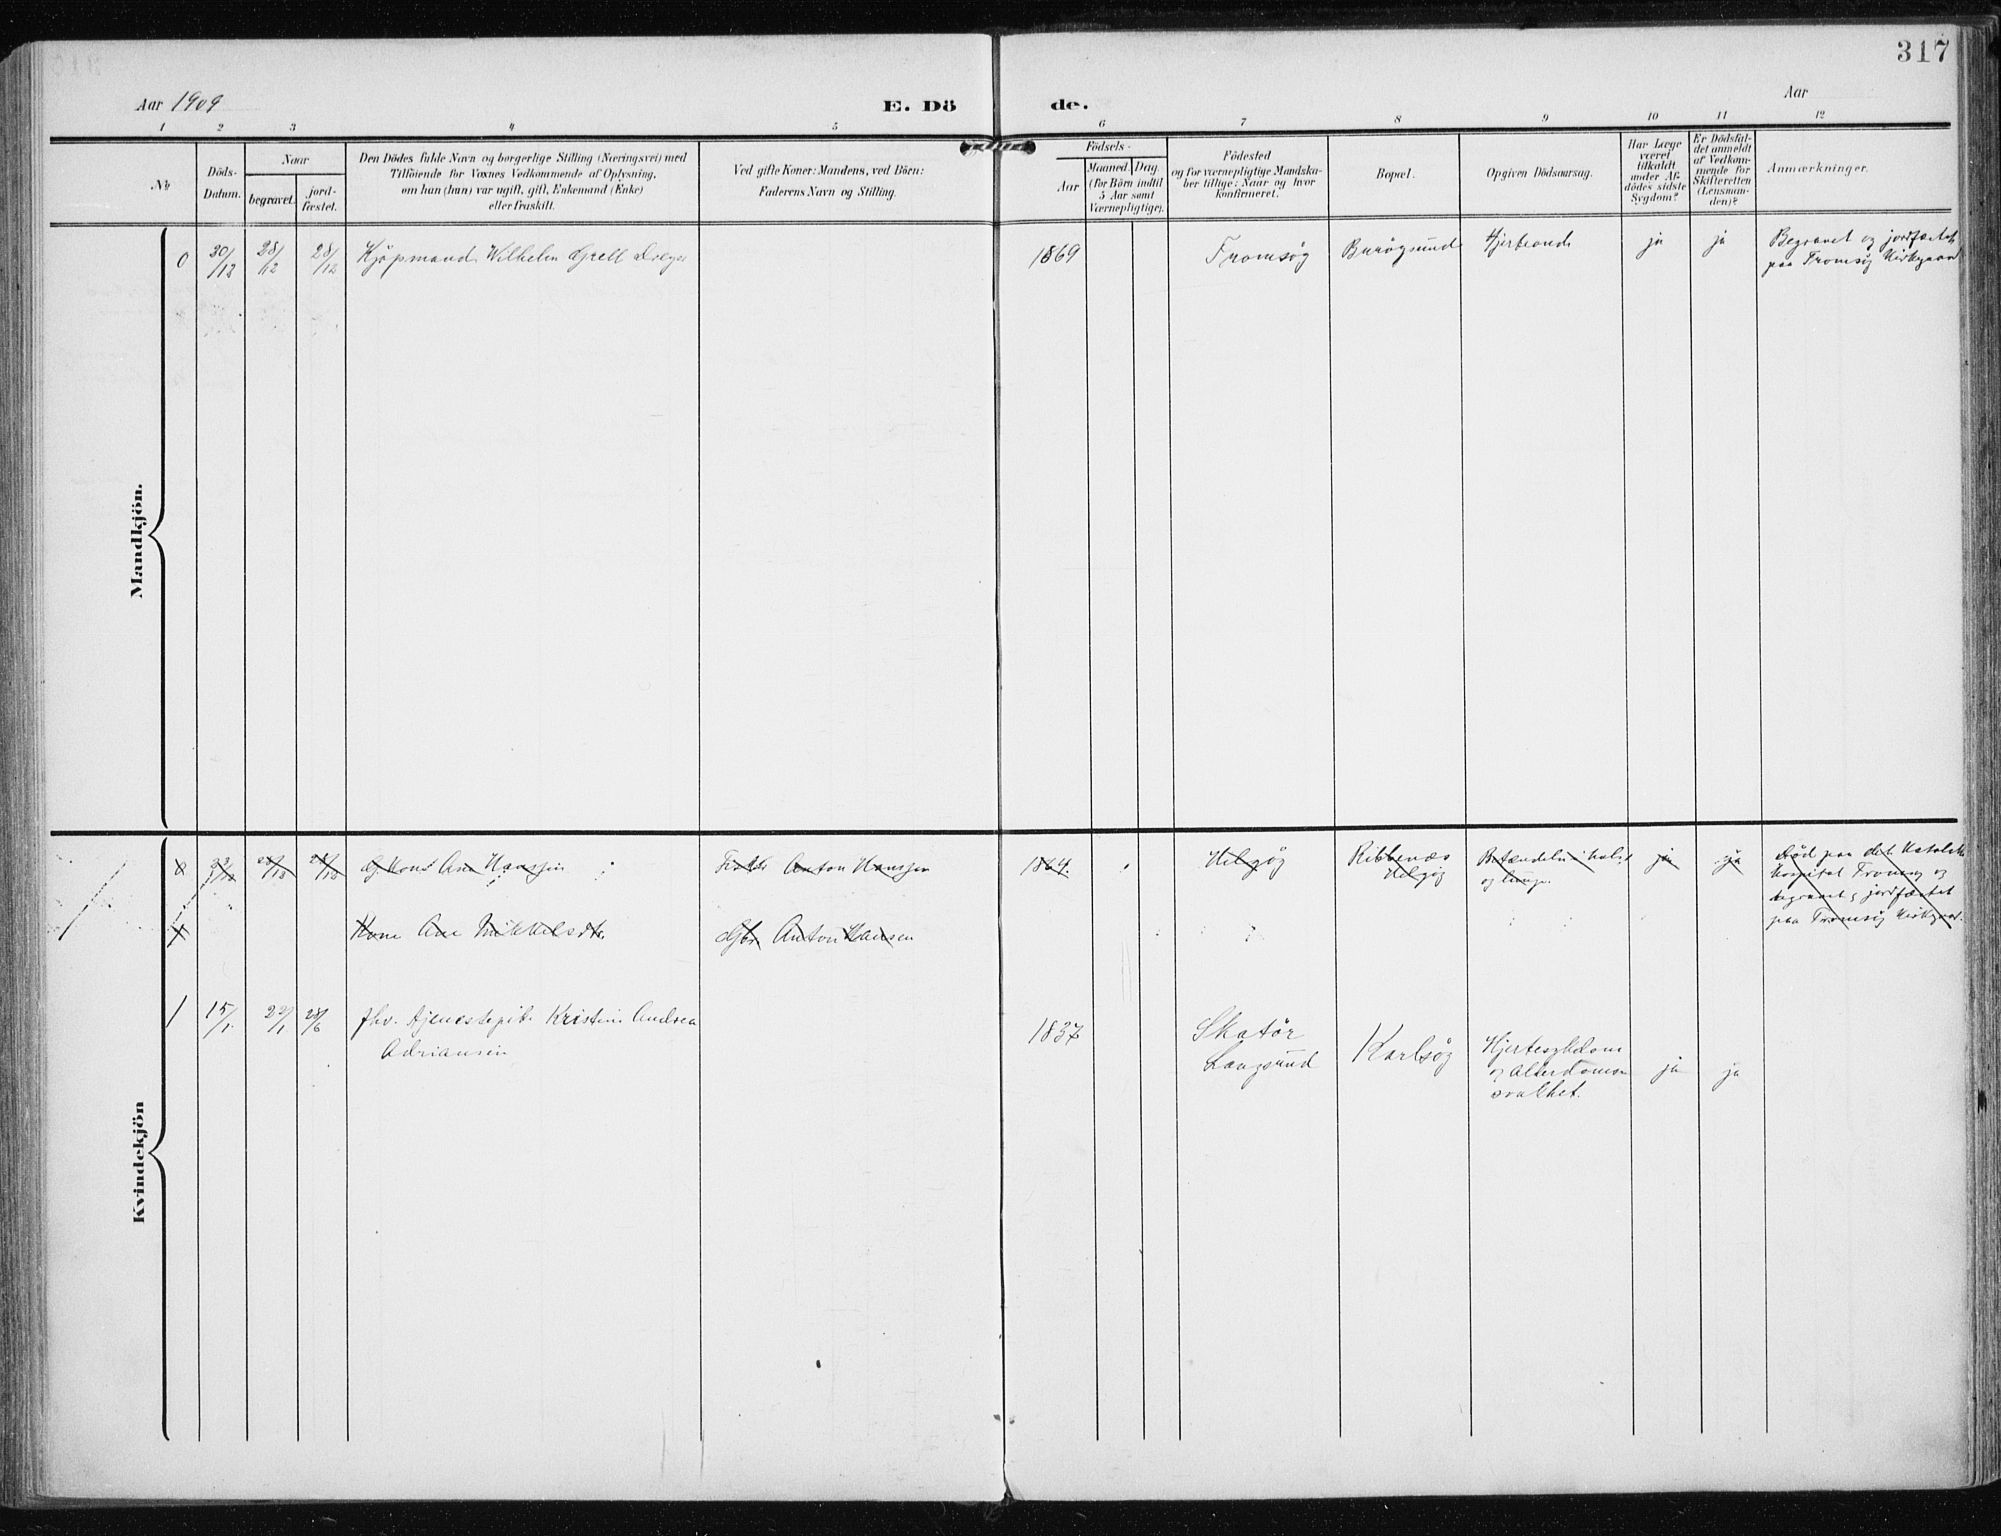 317
Aar 1909
E. Dö
de.
Aar
1 2 3 4 5 6 7 8 9 10 11 12
No
Döds-
Datum.
Naar
begravet.
jord-
fæstet.
Den Dödes fulde Navn og borgerlige Stilling (Næringsvei) med
Tilföiende for Voxnes Vedkommende af Oplysning,
om han (hun) var ugift, gift, Enkemand (Enke)
eller fraskilt.
Ved gifte Koner: Mandens, ved Börn:
Faderens Navn og Stilling.
Födsels-
Aar
Maaned. Dag.
(for Börn indtil
5 Aar samt
Værnepligtige).
Födested
og for værnepligtige Mandska-
ber tillige: Naar og hvor
konfirmeret.
Bopæl.
Opgiven Dödsaarsag.
Har Læge
været
tilkaldt
under Af-
dödes sidste
Sygdom?
Er Dödsfal-
det anmeldt
af Vedkom-
mende for
Skifteretten
(Lensman-
den)?
Anmærkninger.
Mandkjön.
0 20/12 28/12 28/12 Kjöpmand Wilhelm Grell Dreyer 1869 Tromsøg Hjerteonde ja ja Begravet og jordfæstet
paa Tromsø Kirkegaard
Kvindekjön
28/12 28/12 Kone Ane Hanssen Anton Hanssen 1864. Helgøg Ribbenæs
Helgøg
Betændelse i hals
og lunge. ja ja Död paa det Katolske
hospital Tromsø og
begravet, jordfæstet
paa Tromsø Kirkegaard.
Kone Ane Mikkelsdtr. Gbr. Anton Hansen
1 15/1. 22/1 28/6 fhv. tjenestepike Kristine Andrea
Adriansen
1837 Skatør
Langsund
Karlsøg
Hjertesygdom
og Alderdoms
svakhet.
ja ja